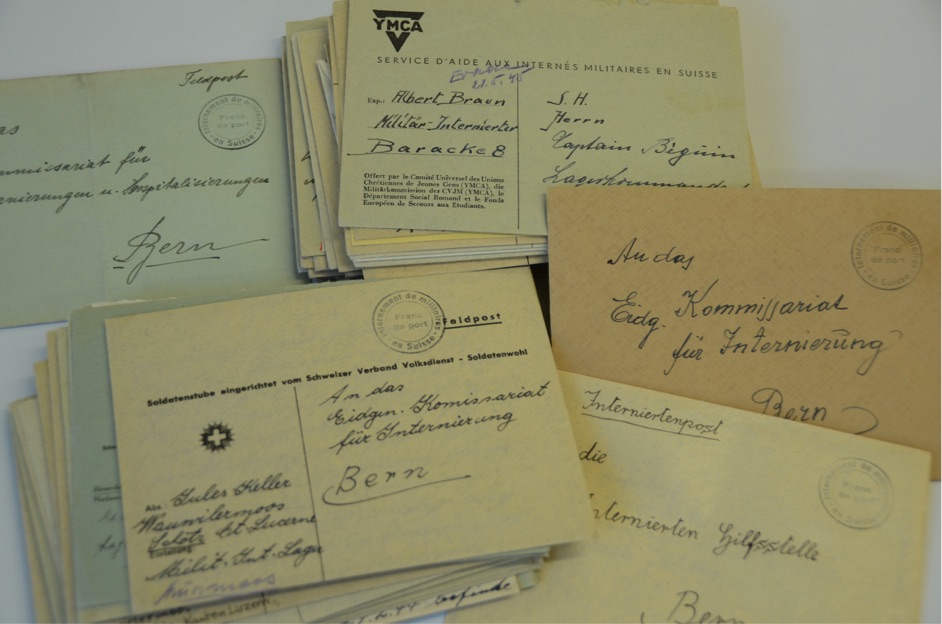 Feldpost
Internement de militaires
Franc
de port
en Suisse
as
mmissariat für
rnierungen u. Hospitalisierungen
Bern
YMCA
SERVICE D'AIDE AUX INTERNÉS MILITAIRES EN SUISSE
21.5.45
Exp.: Albert Braun
Militär-Internierter
Baracke 8
Offert par le Comité Universel des Unions
Chrétiennes de Jeunes Gens (YMCA), die
Militärkommission des CVJM (YMCA), le
Département Social Romand et le Fonds
Européen de Secours aux Étudiants.
S. H.
Herrn
Captain Béguin
Lagerkommandant
Internement de militaires
Franc
de port
en Suisse
An das
Eidg. Kommissariat
für Internierung
Bern
Internement de militaires
Franc
de port
en Suisse
Feldpost
Soldatenstube eingerichtet vom Schweizer Verband Volksdienst - Soldatenwohl
An das
Eidgen. Komissariat
für Internierung
Bern
Abs. Jules Keller
Wauwilermoos
Schötz Ct. Lucerne
Milit. Int. Lager
Interniertenpost
Internement de militaires
Franc
de port
en Suisse
die
Internierten Hilfsstelle
Bern